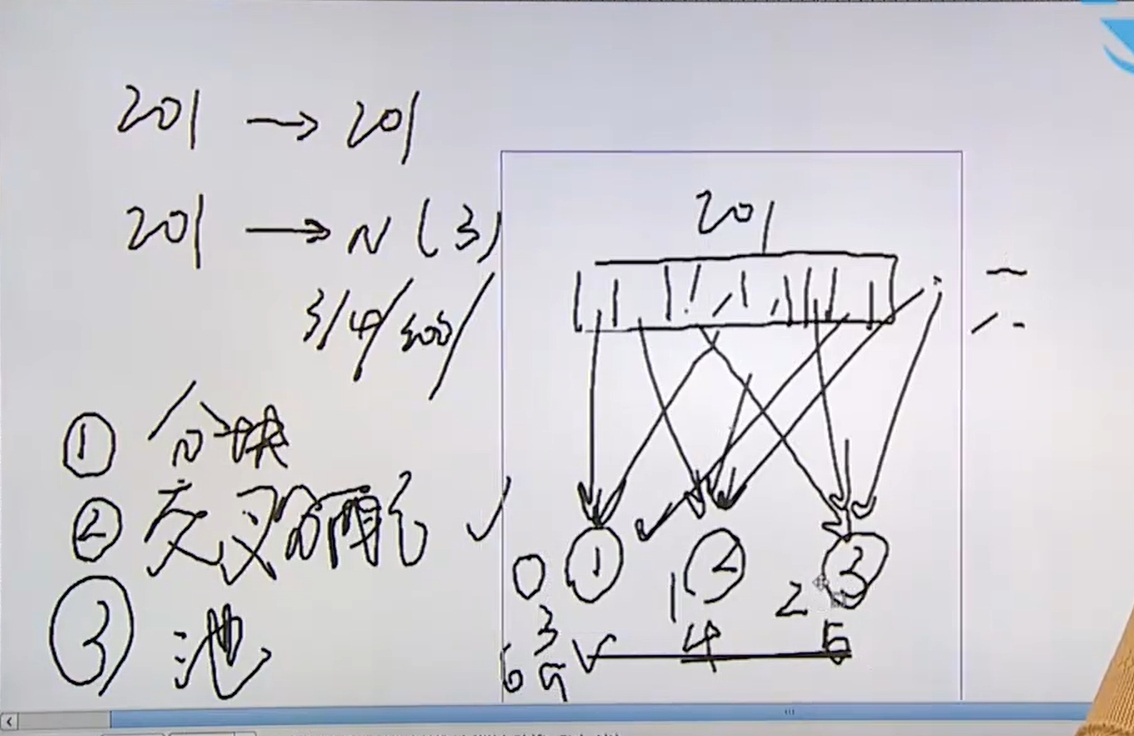 201 → 201
201 → N (3)
3/4/200/
① 分块
② 交叉分配 ✓
③ 池
201
① ② ③
0 1 2
3 4 5
6 9